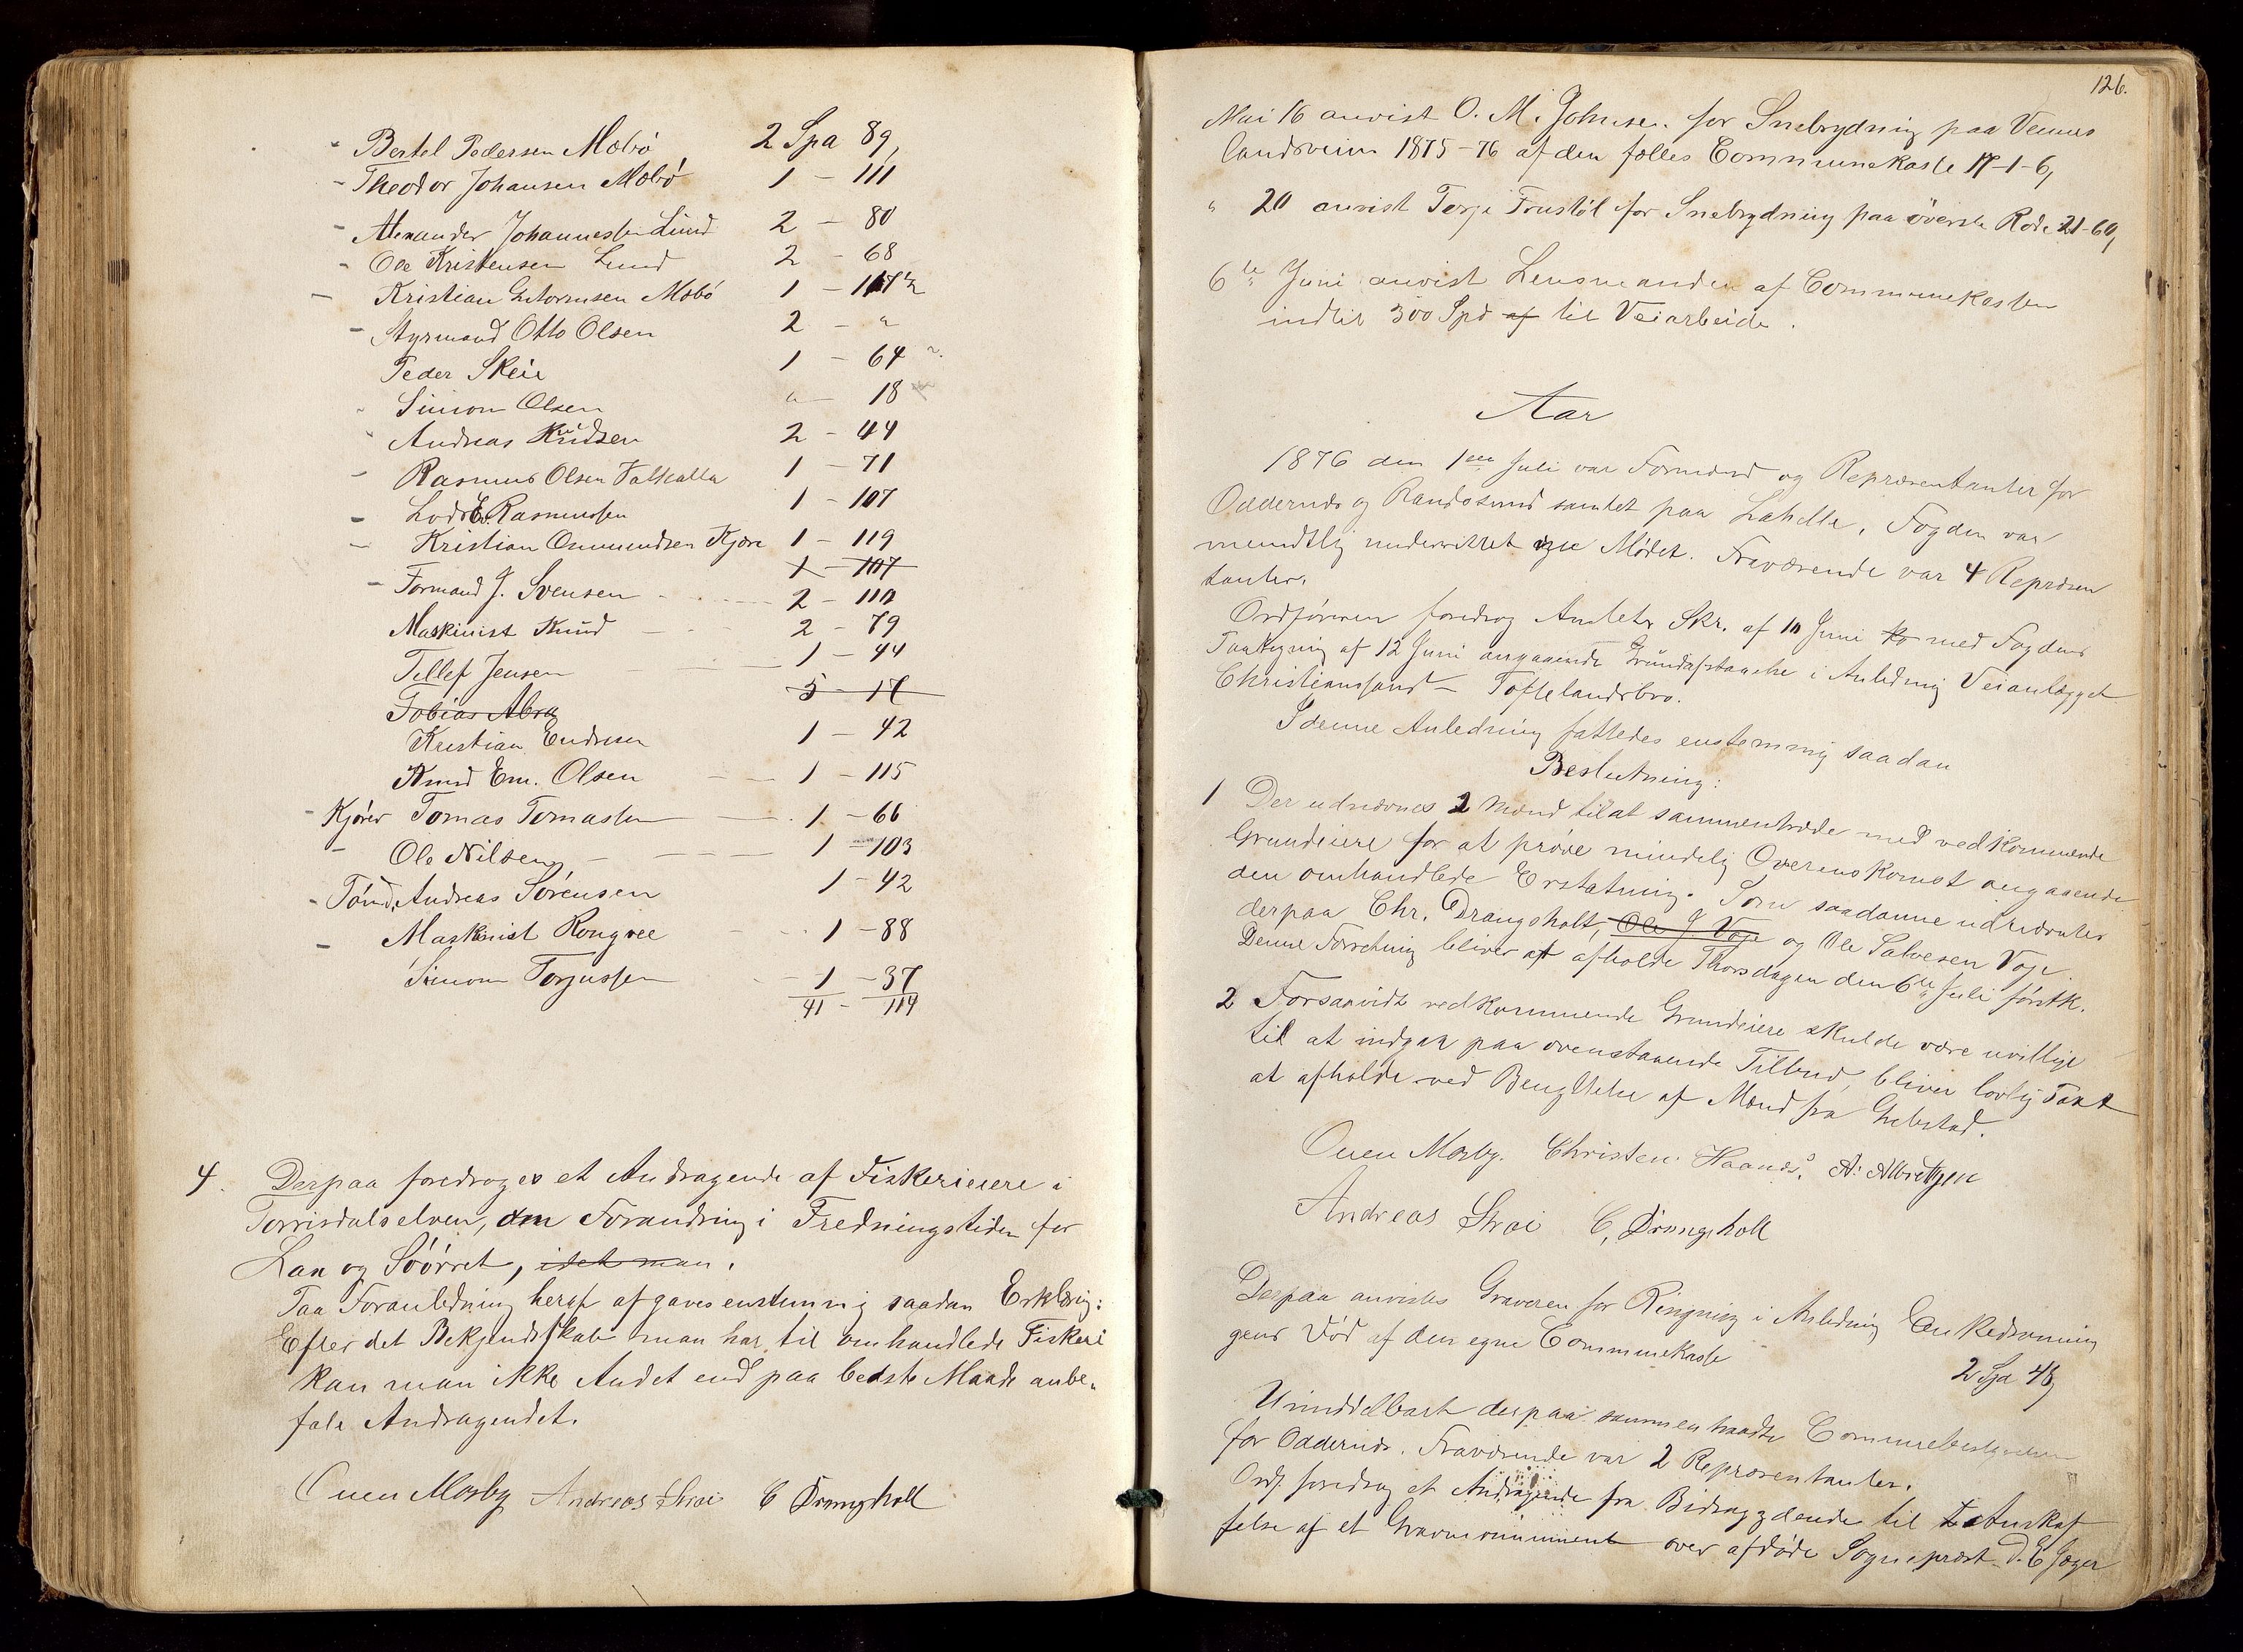 - Bertel Pedersen Mæbø 2 Spd 89,
- Theodor Johansen Mæbø 1 - 111
- Alexander Johannessen Lund 2 - 80
- Ole Kristensen Lund 2 - 68
- Kristian Mæbø 1 -
- Styrmand Otto Olsen 2 - "
Peder Skeie 1 - 64
Simon Olsen " - 18
Andreas Knudsen 2 - 44
- Rasmus Olsen 1 - 71
- Lods E. Rasmussen 1 - 107
- Kristian Osmundsen Kjære 1 - 119
1 - 107
- Formand J. Svensen 2 - 110
Maskinist Knud 2 - 79
Tellef Jensen 1 - 44
Tobias Abra 5 - 17
Kristian Endresen 1 - 42
Knud Em. Olsen 1 - 115
- Kjører Tomas Tomassen 1 - 66
- Ole Nilsen 1 - 103
- Tømd. Andreas Sørensen 1 - 42
- Maskinist Rongvee 1 - 88
Simon Torjussen 1 - 37
41 - 114
4. Derpaa foredroges et Andragende af Fiskerieiere i
Torrisdalselven, om Forandring i Fredningstiden for
Lax og Søørret, idet man.
Paa Foranledning heraf afgaves enstemmig saadan Erklæring:
Efter det Bekjendtskab man har til omhandlede Fiskeri
kan man ikke Andet end paa bedste Maade anbe-
fale Andragendet.
Ouen Mosby Andreas Strai C Drangsholt
126.
Mai 16 anvist O. M. Johnsen for Snebrydning paa Vennes
landsveien 1875-76 af den fælles Communekasse 17-1-6,
" 20 anvist Terje Frustøl for Snebrydning paa øverste Rode 21-60,
6te Juni anvist Lensmanden af Communekassen
indtil 300 Spd af til Veiarbeide.
Aar
1876 den 1ste Juli var Formænd og Repræsentanter for
Oddernes og Randøsund samlet paa Lahelle. Fogden var
mundtlig underrettet om Mødet. Fraværende var 4 Repræsen
tanter.
Ordføreren foredrog Amtets Skr. af 10 Juni med Fogdens
Paategning af 12 Juni angaaende Grundafstaaelse i Anledning Veianlægget
Christianssand - Toftelandsbro.
I denne Anledning fattedes enstemmig saadan
Beslutning:
1 Der udnævnes 2 Mænd til at sammentræde med vedkommende
Grundeiere for at prøve mindelig Overenskomst angaaende
den omhandlede Erstatning. Som saadanne udnævntes
derpaa Chr. Drangsholt, Ole J Voje og Ole Salvesen Voje.
Denne Forretning bliver at afholde Thorsdagen den 6te Juli førstk.
2 Forsaavidt vedkommende Grundeiere skulde være uvillige
til at indgaa paa ovenstaaende Tilbud, bliver lovlig Taxt
at afholde ved Benyttelse af Mænd fra Grebstad.
Ouen Mosby. Christen Haanes. A. Albretsen
Andreas Strai C, Drangsholt
Derpaa anvistes Graveren for Ringning i Anledning Enkedronnin
gens Død af den egne Communekasse
2 Spd 48,
Umiddelbart derpaa sammentraadte Communebestyrelsen
for Oddernes. Fraværende var 2 Repræsentanter.
Ordf. foredrog et Andragende fra Bidragydende til Anskaf
felse af et Gravmonument over afdøde Sognepræst D. E Jæger